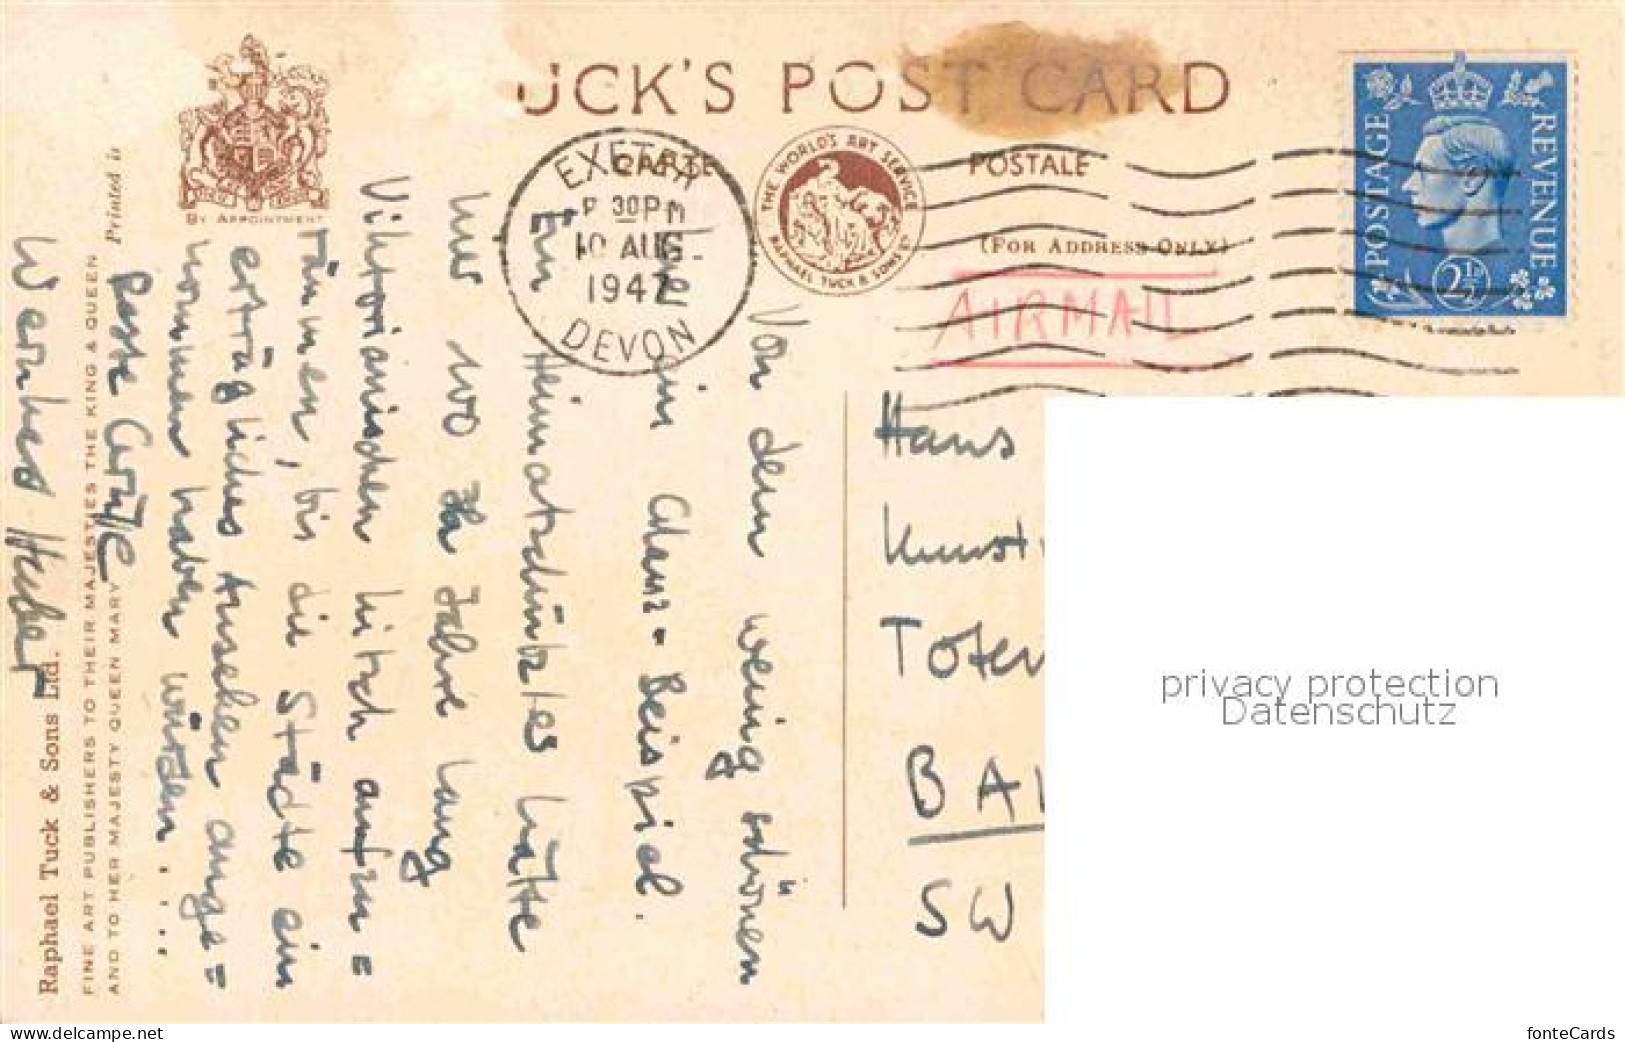 UCK'S POST CARD
CARTE POSTALE
(FOR ADDRESS ONLY)
THE WORLD'S ART SERVICE
RAPHAEL TUCK & SONS LTD
BY APPOINTMENT
EXETER
30 PM
10 AUG
1947
DEVON
POSTAGE REVENUE
2½D
AIRMAIL
Von dem wenig schönen
ein Glanz-Beispiel.
Ein Heimatschützler hätte
hier 100 Jahre lang
Viktorianischen Kitsch aufzu=
räumen, bis die Städte ein
erträgliches Aussehen ange=
nommen haben würden....
Beste Grüße
Hans
Kunst
BA
SW
Printed in
Raphael Tuck & Sons Ltd.
FINE ART PUBLISHERS TO THEIR MAJESTIES THE KING & QUEEN
AND TO HER MAJESTY QUEEN MARY
privacy protection
Datenschutz
www.delcampe.net
fonteCards